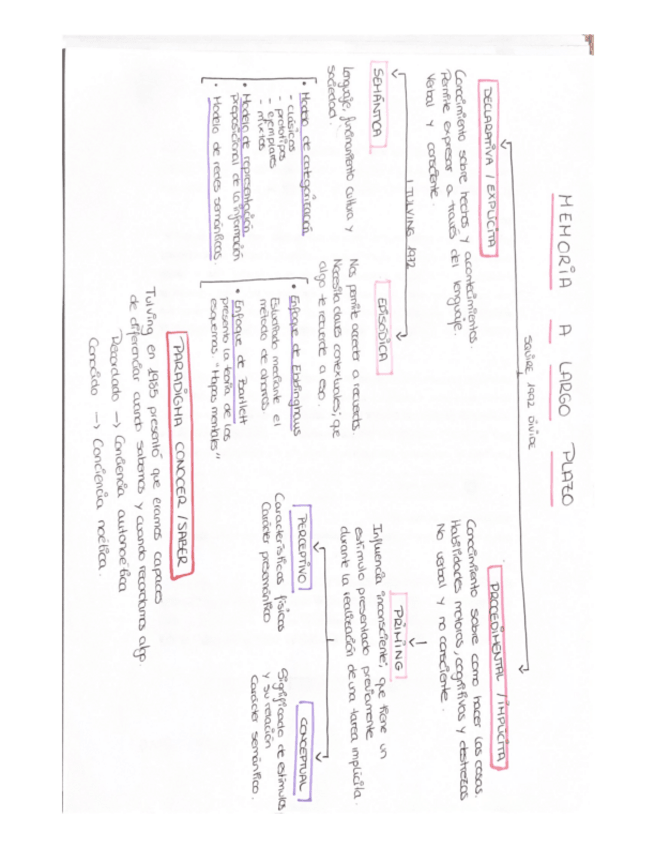 MEMORIA A LARGO PLAZO
SQUIRE 1992 DIVIDE
DECLARATIVA / EXPLÍCITA
Conocimiento sobre hechos y acontecimientos.
Permite expresar a través del lenguaje.
Verbal y consciente.
TULVING 1972
SEMÁNTICA
Lenguaje, funcionamiento cultura y
sociedad.
• Modelo de categorización
- clásicos
- prototipos
- ejemplares
- mixtos
• Modelo de representación
proposicional de la información
• Modelo de redes semánticas.
EPISÓDICA
Nos permite acceder a recuerdos.
Necesita claves contextuales; que
algo te recuerde a eso.
• Enfoque de Ebbinghaus
Estudiado mediante el
método de ahorros.
• Enfoque de Bartlett
presenta la teoría de los
esquemas. "Mapas mentales"
PROCEDIMENTAL / IMPLÍCITA
Conocimiento sobre como hacer las cosas.
Habilidades motoras, cognitivas y destrezas
No verbal y no consciente.
PRIMING
Influencia inconsciente, que tiene un
estímulo presentado previamente
durante la realización de una tarea implícita.
PERCEPTIVO
Características físicas
Carácter presemántico
CONCEPTUAL
Significado de estímulos
y su relación
Carácter semántico.
PARADIGMA CONOCER / SABER
Tulving en 1985 presentó que eramos capaces
de diferenciar cuando sabemos y cuando recordamos algo
Recordado → Conciencia autonoética
Conocido → Conciencia noética.